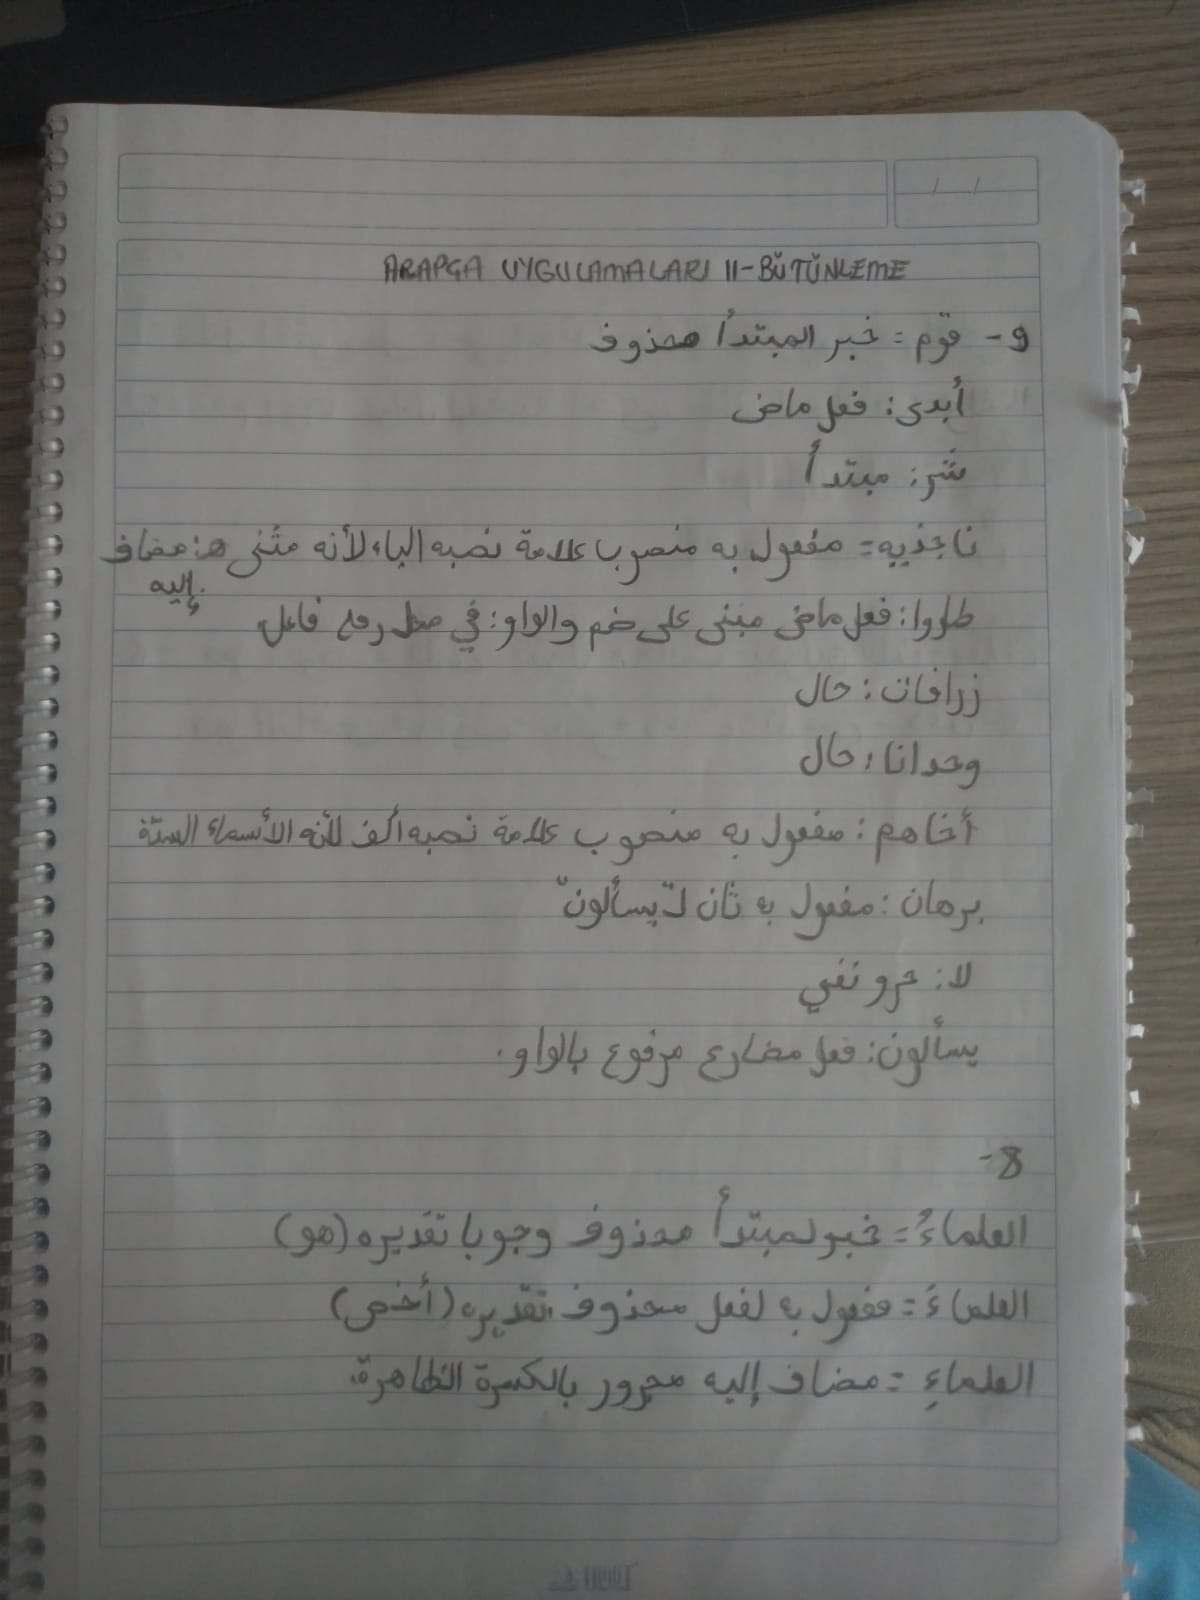 ARAPÇA UYGULAMALARI II-BÜTÜNLEME
9- قوم = خبر المبتدأ محذوف
أبدى: فعل ماض
شر: مبتدأ
ناجذيه = مفعول به منصوب علامة نصبه الياء لأنه مثنى ه: مضاف إليه
طاروا: فعل ماض مبنى على ضم والواو: في محل رفع فاعل
زرافات: حال
وحدانا: حال
أخاهم: مفعول به منصوب علامة نصبه ألف لأنه الأسماء الستة
برهان: مفعول به ثان لـ"يسألون"
لا: حرو نفي
يسألون: فعل مضارع مرفوع بالواو.
8-
العلماءُ = خبر لمبتدأ محذوف وجوبا تقديره (هو)
العلماءَ = مفعول به لفعل محذوف تقديره (أخص)
العلماءِ = مضاف إليه مجرور بالكسرة الظاهرة.